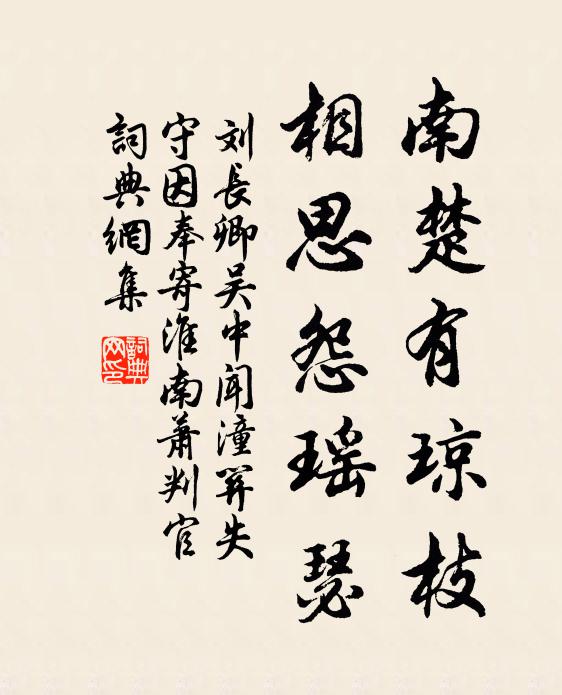 南楚有琼枝
相思怨瑶瑟
刘長卿吴中闻潼関失
守因奉寄淮南萧判官
詞典網集
詞典
网印